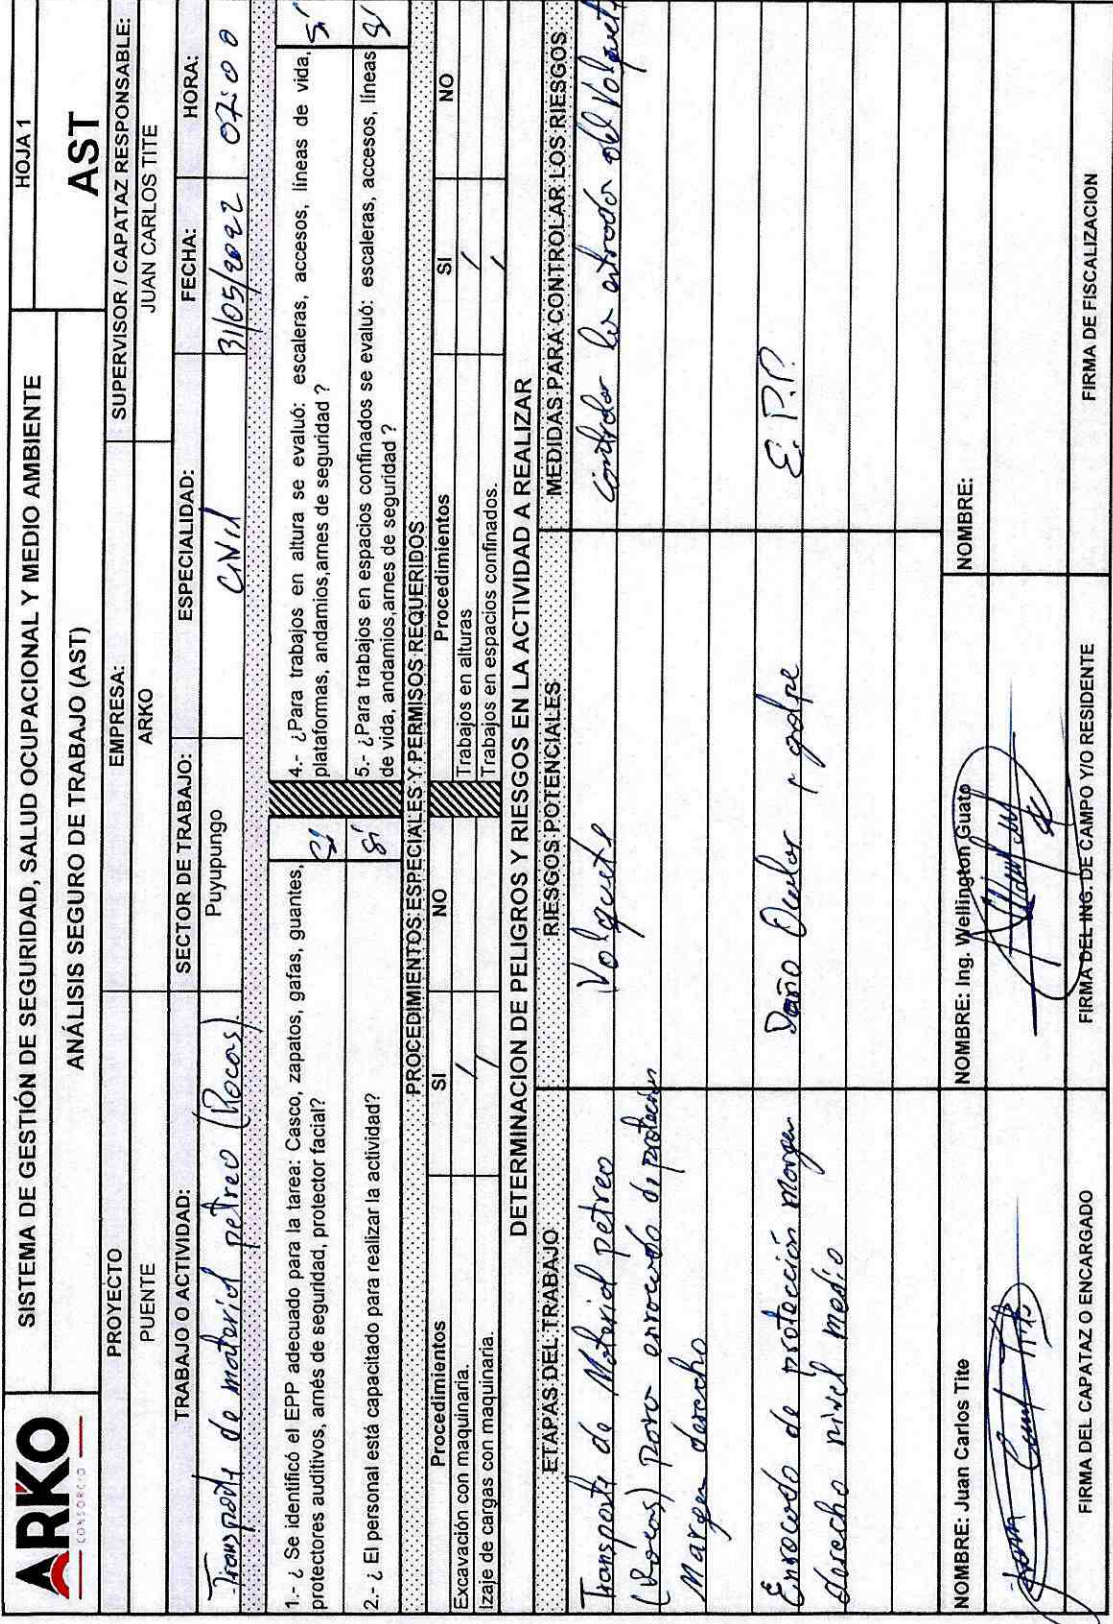 ARKO
CONSORCIO
SISTEMA DE GESTIÓN DE SEGURIDAD, SALUD OCUPACIONAL Y MEDIO AMBIENTE
HOJA 1
ANÁLISIS SEGURO DE TRABAJO (AST)
AST
PROYECTO
EMPRESA:
SUPERVISOR / CAPATAZ RESPONSABLE:
PUENTE
ARKO
JUAN CARLOS TITE
TRABAJO O ACTIVIDAD:
SECTOR DE TRABAJO:
ESPECIALIDAD:
FECHA:
HORA:
Transporte de material petreo (Rocas).
Puyupungo
Civil
31/05/2022
07:00
1.- ¿ Se identificó el EPP adecuado para la tarea: Casco, zapatos, gafas, guantes,
protectores auditivos, arnés de seguridad, protector facial?
Si
4.- ¿Para trabajos en altura se evaluó: escaleras, accesos, líneas de vida,
plataformas, andamios,arnes de seguridad ?
Si
2.- ¿ El personal está capacitado para realizar la actividad?
Si
5.- ¿Para trabajos en espacios confinados se evaluó: escaleras, accesos, líneas
de vida, andamios,arnes de seguridad ?
Si
PROCEDIMIENTOS ESPECIALES Y PERMISOS REQUERIDOS
Procedimientos
SI
NO
Procedimientos
SI
NO
Excavación con maquinaria.
/
Trabajos en alturas
/
Izaje de cargas con maquinaria.
/
Trabajos en espacios confinados.
/
DETERMINACION DE PELIGROS Y RIESGOS EN LA ACTIVIDAD A REALIZAR
ETAPAS DEL TRABAJO
RIESGOS POTENCIALES
MEDIDAS PARA CONTROLAR LOS RIESGOS
Transporte de Material petreo
Volquete
Controlar la entrada del Volquete
(Rocas) para enrocado de protección
Margen derecho
Enrocado de protección margen
Daño Ocular y golpe
E.P.P.
derecho nivel medio
NOMBRE: Juan Carlos Tite
NOMBRE: Ing. Wellington Guato
NOMBRE:
FIRMA DEL CAPATAZ O ENCARGADO
FIRMA DEL ING. DE CAMPO Y/O RESIDENTE
FIRMA DE FISCALIZACION